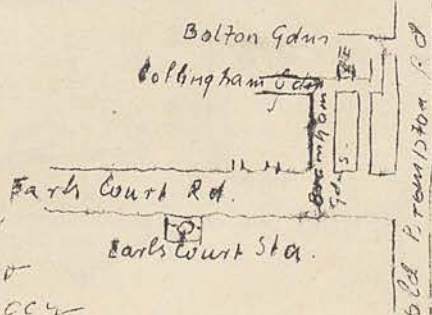 Bolton Gdns
Collingham Gdns
Bramham
Gdns.
Earls Court Rd.
Earls Court Sta.
Old Brompton Rd